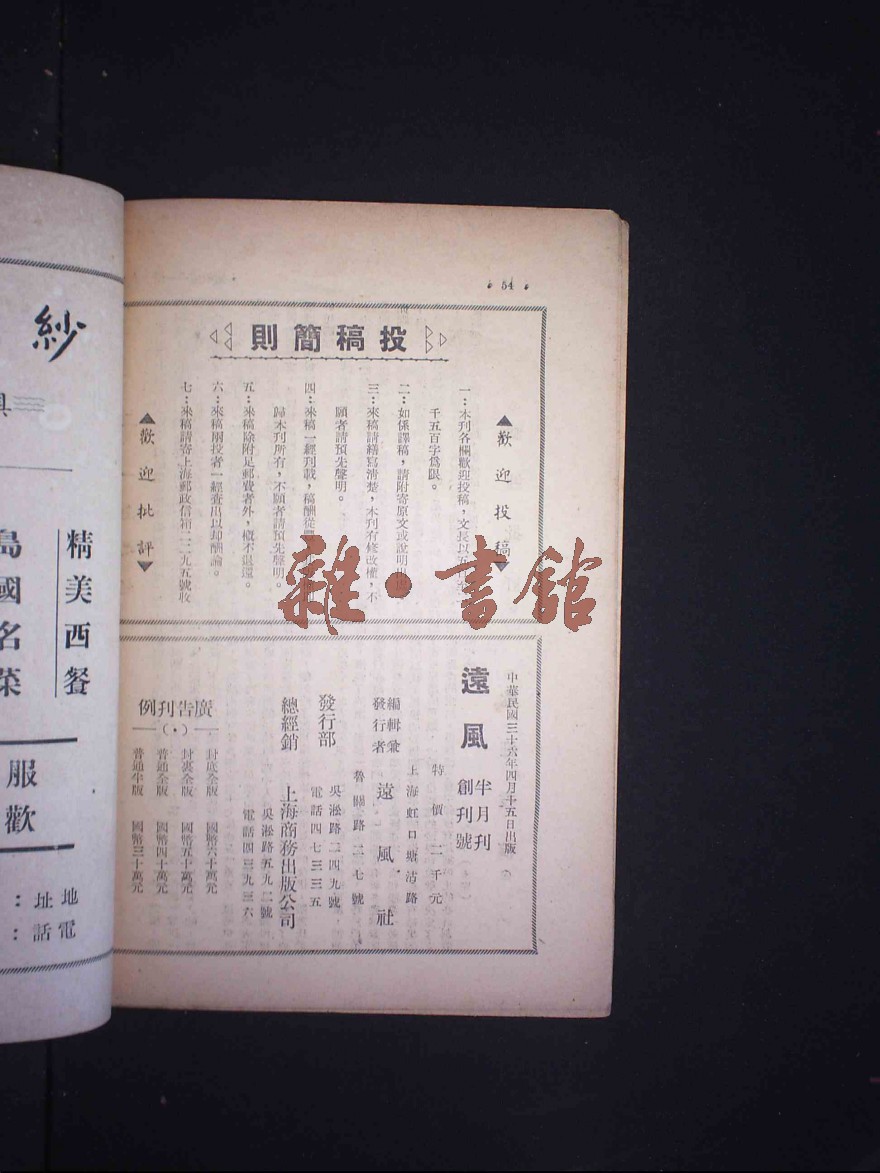 54
投稿簡則
歡迎投稿
一：本刊各欄歡迎投稿，文長以五
千五百字爲限。
二：如係譯稿，請附寄原文或說明出
三：來稿請繕寫清楚，本刊有修改權，不
願者請預先聲明。
四：來稿一經刊載，稿酬從
歸本刊所有，不願者請預先聲明。
五：來稿除附足郵費者外，槪不退還。
六：來稿兩投者一經查出以却酬論。
七：來稿請寄上海郵政信箱二二九五號收
歡迎批評
中華民國三十六年四月十五日出版
遠風
半月刊
創刊號
特價二千元
上海虹口塘沽路
魯關路二七號
編輯兼
發行者
遠風社
發行部
吳淞路二四九號
電話四七三三五
總經銷
上海商務出版公司
吳淞路五九二號
電話四三九三六
廣告刊例
封底全版 國幣六十萬元
封裏全版 國幣五十萬元
普通全版 國幣四十萬元
普通半版 國幣三十萬元
雜·書館
紗
具
精美西餐
島國名菜
服
歡
地址：
電話：